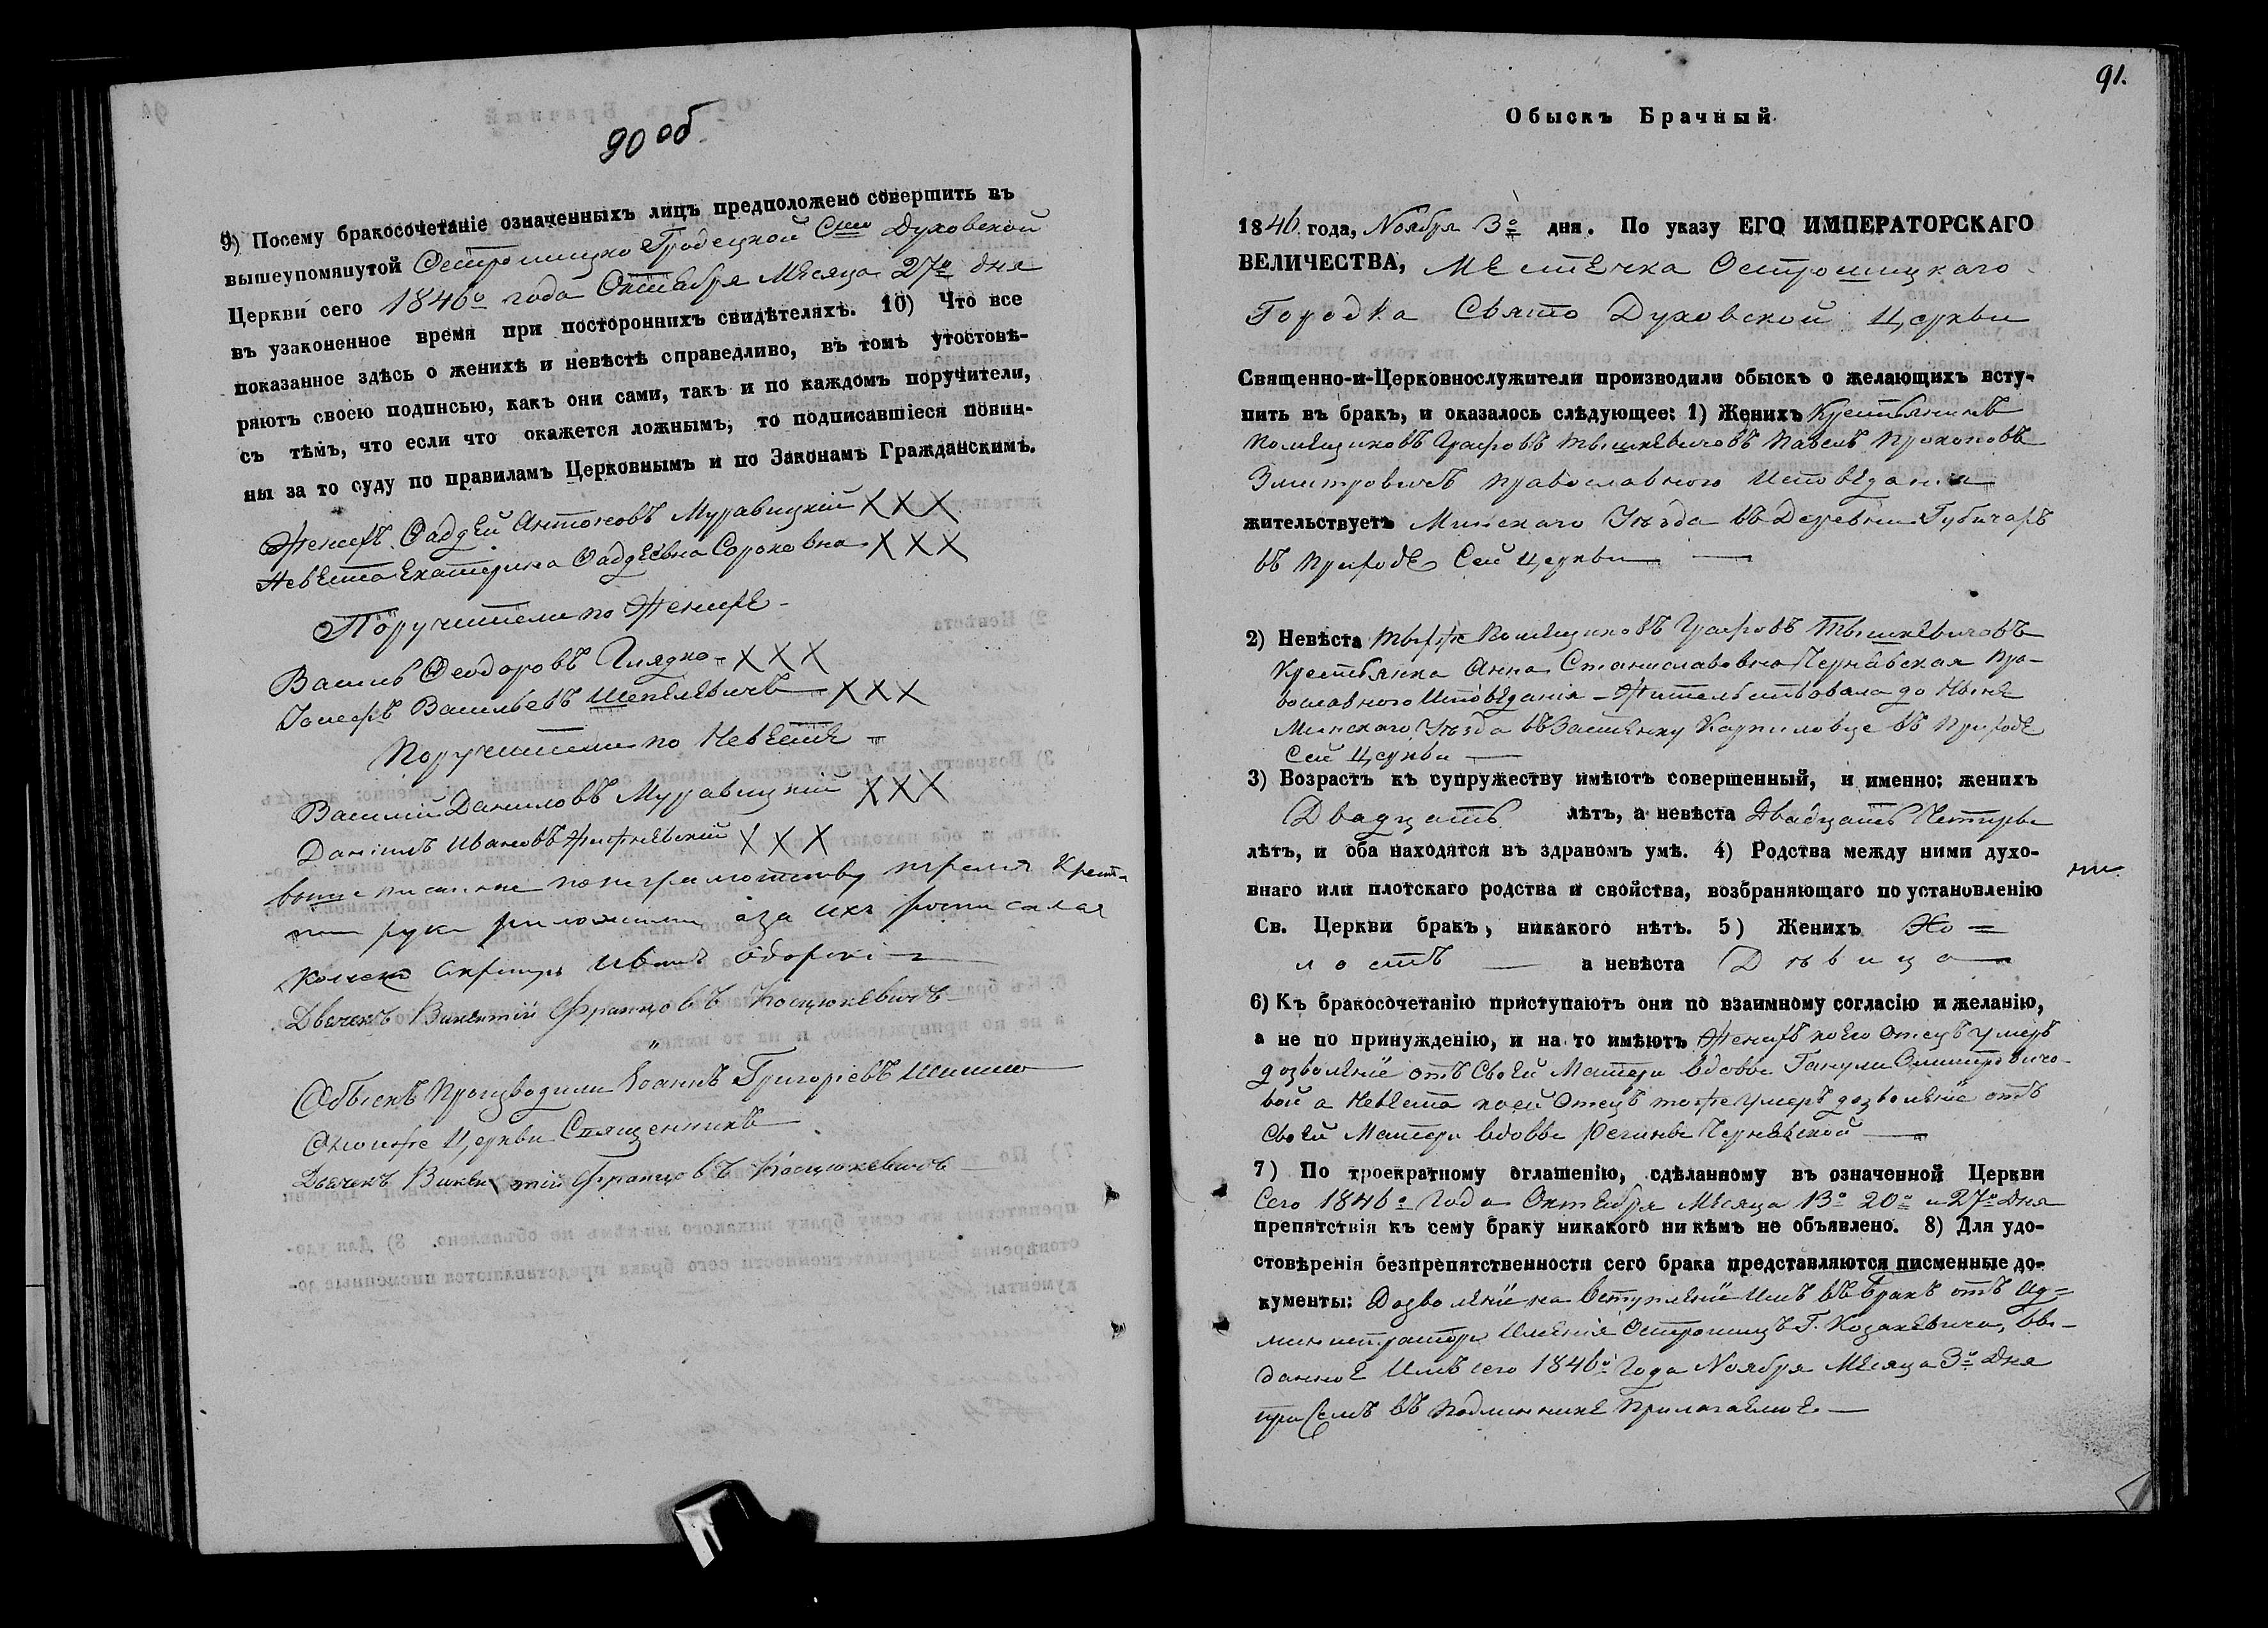 90 об.
9) Посему бракосочетаніе означенныхъ лицъ предположено совершить въ
вышеупомянутой Острошицко Гродецкой Свто Духовской
Церкви сего 1846о года Октября Мѣсяца 27о дня
въ узаконенное время при постороннихъ свидѣтеляхъ. 10) Что все
показанное здѣсь о женихѣ и невѣстѣ справедливо, въ томъ утостовѣ-
ряютъ своею подписью, какъ они сами, такъ и по каждомъ поручители,
съ тѣмъ, что если что окажется ложнымъ, то подписавшіеся повин-
ны за то суду по правиламъ Церковнымъ и по Законамъ Гражданскимъ.
Женихъ Фадѣй Антоновъ Муравицкій XXX
Невѣста Екатерина Фадѣевна Сороковна XXX
Поручители по Женихѣ -
Василь Феодоровъ Глядко XXX
Іосифъ Васильевъ Шепелевичъ XXX
Поручители по Невѣстѣ
Василій Даниловъ Муравицкій XXX
Данилъ Ивановъ XXX
выше писанные по неграмотству тремя крест-
ми руки приложили а за ихъ росписался
Иванъ
Дьячекъ Викентій Францовъ Косцюкевичъ
Обыскъ Производили Іоаннъ Григоріевъ
Оной же Церкви Священникъ
Дьячекъ Викентій Францовъ Косцюкевичъ
91.
Обыскъ Брачный
1846 года, Ноября 3о дня. По указу ЕГО ИМПЕРАТОРСКАГО
ВЕЛИЧЕСТВА, Мѣстечка Острошицкаго
Городка Свято Духовской Церкви
Священно-и-Церковнослужители производили обыскъ о желающихъ всту-
пить въ бракъ, и оказалось слѣдующее: 1) Женихъ Крестьянинъ
Помѣщиковъ Графовъ Тышкевичовъ Павелъ Прокоповъ
Змитровичъ православного Исповѣданія
жительствуетъ Минскаго Уѣзда въ Деревни Губичахъ
въ Приходѣ Сей Церкви
2) Невѣста тыхже Помѣщиковъ Графовъ Тышкевичовъ
Крестьянка Анна Станиславовна Чернявская Пра-
вославного Исповѣданія - Жительствовала до Нынѣ
Минскаго Уѣзда въ Застѣнку Карпиловце въ Приходѣ
Сей Церкви
3) Возрастъ къ супружеству имѣютъ совершенный, и именно: женихъ
Двадцать лѣтъ, а невѣста Двадцать Четыре
лѣтъ, и оба находятся въ здравомъ умѣ. 4) Родства между ними духо-
внаго или плотскаго родства и свойства, возбраняющаго по установленію
Св. Церкви бракъ, никакого нѣтъ. 5) Женихъ Хо =
лостъ а невѣста Дѣвица
6) Къ бракосочетанію приступаютъ они по взаимному согласію и желанію,
а не по принужденію, и на то имѣютъ Женихъ коего Отецъ умеръ
дозволеніе отъ Своей Матери вдовы Ганули Змитровичо-
вой а Невѣста коей Отецъ тоже умеръ дозволеніе отъ
Своей Матери вдовы Регины Чернявской
7) По троекратному оглашенію, сдѣланному въ означенной Церкви
Сего 1846о Года Октября Мѣсяца 13о 20о и 27о Дня
препятствія къ сему браку никакого ни кѣмъ не объявлено. 8) Для удо-
стовѣренія безпрепятственности сего брака представляются писменные до-
кументы: Дозволеніе на Вступленіе Имъ въ Бракъ отъ Ад=
министратора Имѣнія Острошицъ Г. Козакевича, вы-
данное Имъ сего 1846о Года Ноября Мѣсяца 3о Дня
при Семъ въ подлинникѣ Прилагаемое.